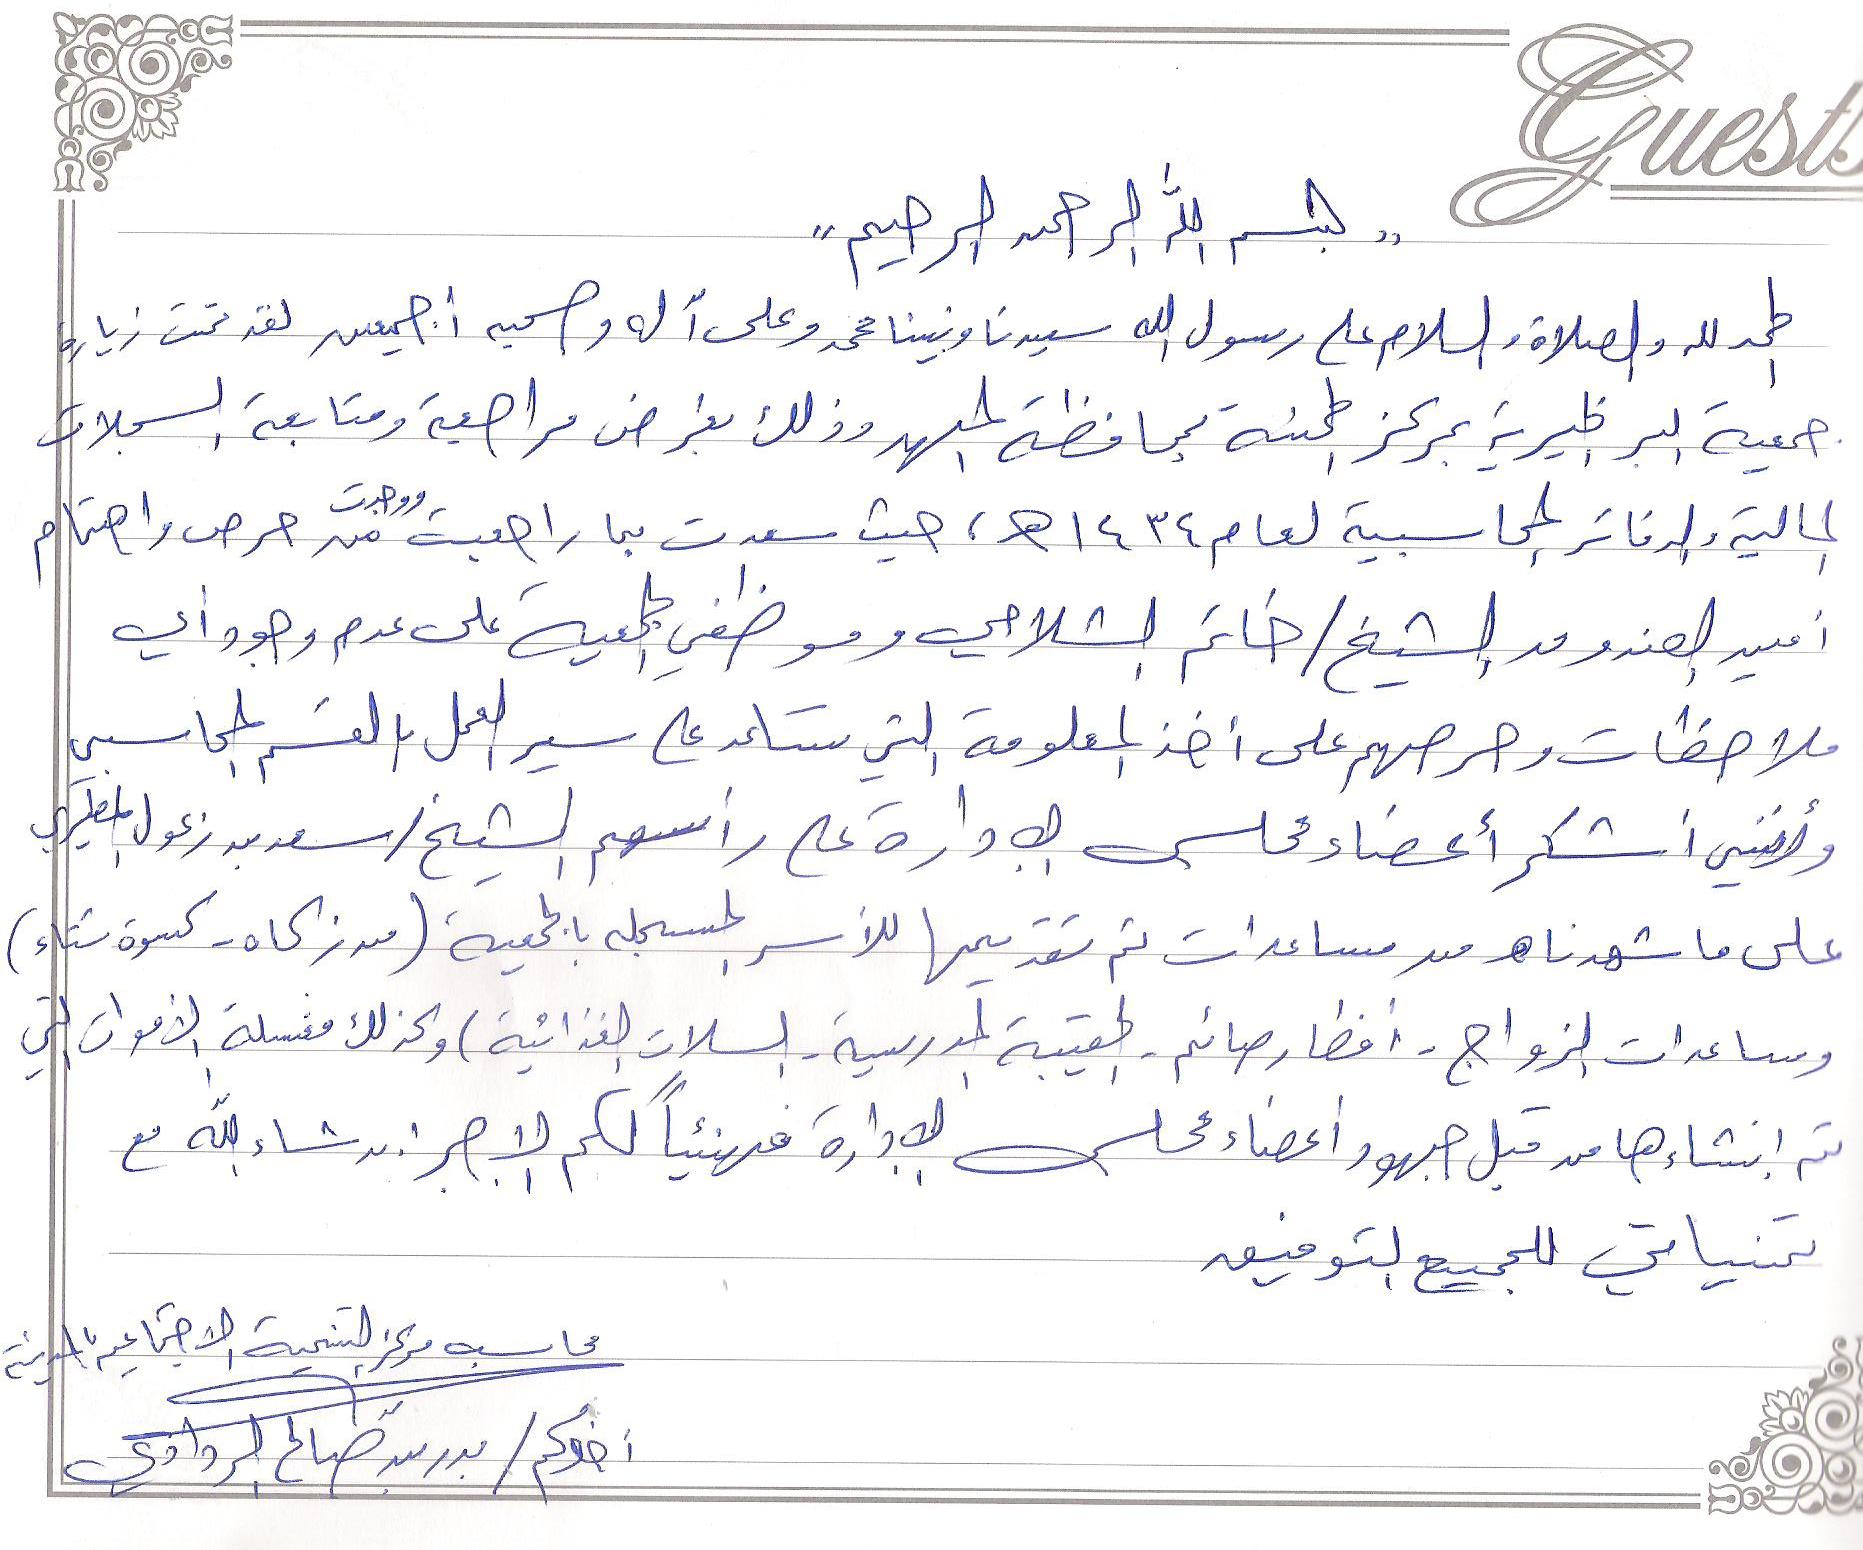 Guests
" بسم الله الرحمن الرحيم "
الحمد لله والصلاة والسلام على رسول الله سيدنا ونبينا محمد وعلى آله وصحبه أجمعين لقد تمت زيارة
جمعية البر الخيرية بمركز الحسنة بمحافظة المهد وذلك بغرض مراجعة ومتابعة السجلات
المالية والدفاتر المحاسبية لعام ١٤٣٤هـ، حيث سعدت بما راجعت ووجدت من حرص واهتمام
أمين الصندوق الشيخ/ خاتم الشلاحي وموظفي الجمعية على عدم وجود أي
ملاحظات وحرصهم على أخذ المعلومة التي ستساعد على سير العمل بالقسم المحاسبي
وأنني أشكر أعضاء مجلس الإدارة على رأسهم الشيخ/ سعد بن زعول المطيري
على ما شهدناه من مساعدات تم تقديمها للأسر المسجله بالجمعية (من زكاه - كسوة شتاء)
ومساعدات الزواج - أفطار صائم - الحقيبة المدرسية - السلات الغذائية) وكذلك مغسلة الأموات التي
تم إنشاءها من قبل جهود أعضاء مجلس الإدارة فهنيئاً لكم الأجر إن شاء الله مع
تمنياتي للجميع التوفيق
محاسب مركز التنمية الاجتماعيه بالمدينة
أخوكم/ بدر بن صالح الردادي